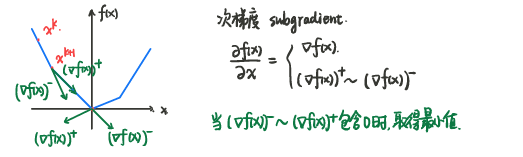 f(x)
x^k
x^{k+1}
(∇f(x))^+
(∇f(x))^-
x
(∇f(x))^+
(∇f(x))^-
次梯度 subgradient.
∂f(x)/∂x = { ∇f(x).
(∇f(x))^+ ~ (∇f(x))^-
当 (∇f(x))^- ~ (∇f(x))^+ 包含0时,取得最小值.